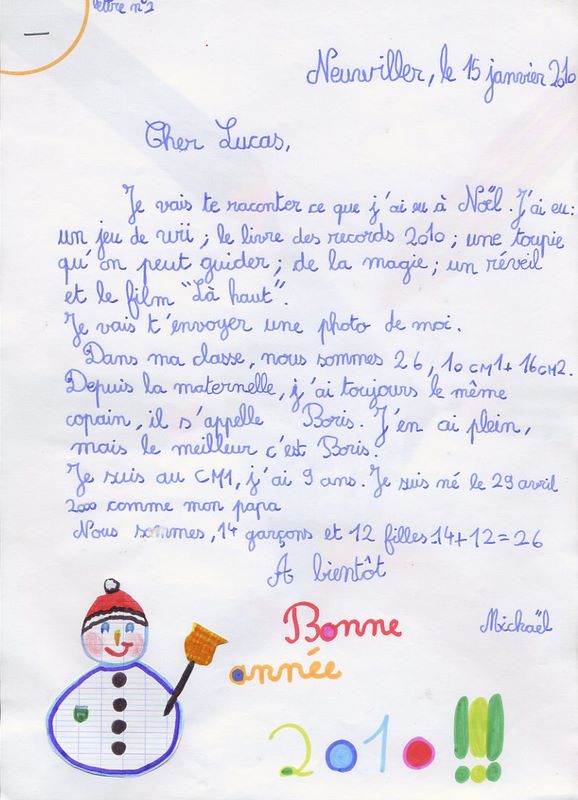 lettre n°1
Neuwiller, le 15 janvier 2010
Cher Lucas,
Je vais te raconter ce que j'ai eu à Noël. J'ai eu:
un jeu de wii ; le livre des records 2010 ; une toupie
qu'on peut guider ; de la magie ; un réveil
et le film "Là haut".
Je vais t'envoyer une photo de moi.
Dans ma classe, nous sommes 26, 10 CM1+ 16CM2.
Depuis la maternelle, j'ai toujours le même
copain, il s'appelle Boris. J'en ai plein,
mais le meilleur c'est Boris.
Je suis au CM1, j'ai 9 ans. Je suis né le 29 avril
2000 comme mon papa
Nous sommes, 14 garçons et 12 filles 14+12=26
A bientôt
Mickaël
Bonne
année
2010!!!